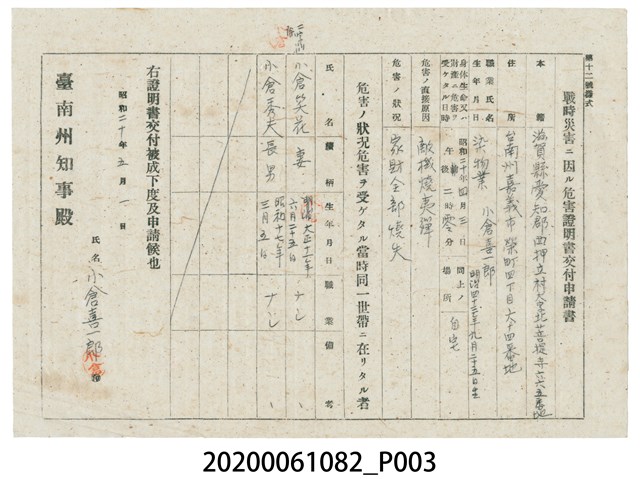 第十二號樣式
戰時災害ニ因ル危害證明書交付申請書
本籍 滋賀縣愛知郡西押立村大字北菩提寺六六五番地
住所 台南州嘉義市榮町四丁目六十四番地
職業氏名 染物業 小倉喜一郎
生年月日 明治四十三年九月二十五日生
身体生命又ハ財産ニ危害ヲ受ケタル日時 昭和二十年四月三日 午後二時零分
同上ノ場所 自宅
危害ノ直接原因 敵機燒夷彈
危害ノ狀況 家財全部燒失
危害ノ狀況危害ヲ受ケタル當時同一世帶ニ在リタル者
氏名 續柄 生年月日 職業 備考
小倉笑花 妻 大正十二年六月二十五日 ナシ
小倉秀夫 長男 昭和十七年三月五日 ナシ
右證明書交付被成下度及申請候也
昭和二十年五月一日
氏名 小倉喜一郎
臺南州知事殿
20200061082_P003